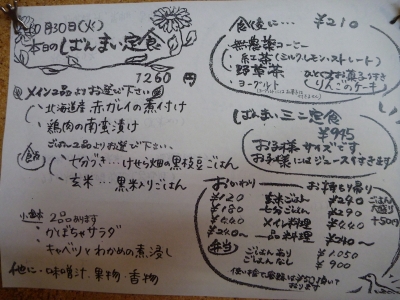 10月30日(火)
本日のしばんまい定食
1260円
メイン2品よりお選び下さい
北海道産 赤ガレイの煮付け
鶏肉の南蛮漬け
ご飯2品よりお選び下さい。
七分づき…けせら畑の黒枝豆ごはん
玄米…黒米入りごはん
小鉢 2品あります
かぼちゃサラダ
キャベツとわかめの煮浸し
他に・味噌汁、果物・香物
食後に… ¥210
無農薬コーヒー
紅茶(ミルク、レモン、ストレート)
野草茶
ヨーグルト りんごのケーキ
しばんまいミニ定食
¥945
お子様サイズです。
お子様にはジュース付きます
おかわり お持ち帰り
¥120 玄米ごはん ¥290
¥180 七分ごはん ¥290
¥440 メイン料理 ¥440
¥240~ 一品料理 ¥240~
ごはん大盛り +50円
弁当 ごはんあり ¥1,050
ごはんなし ¥900